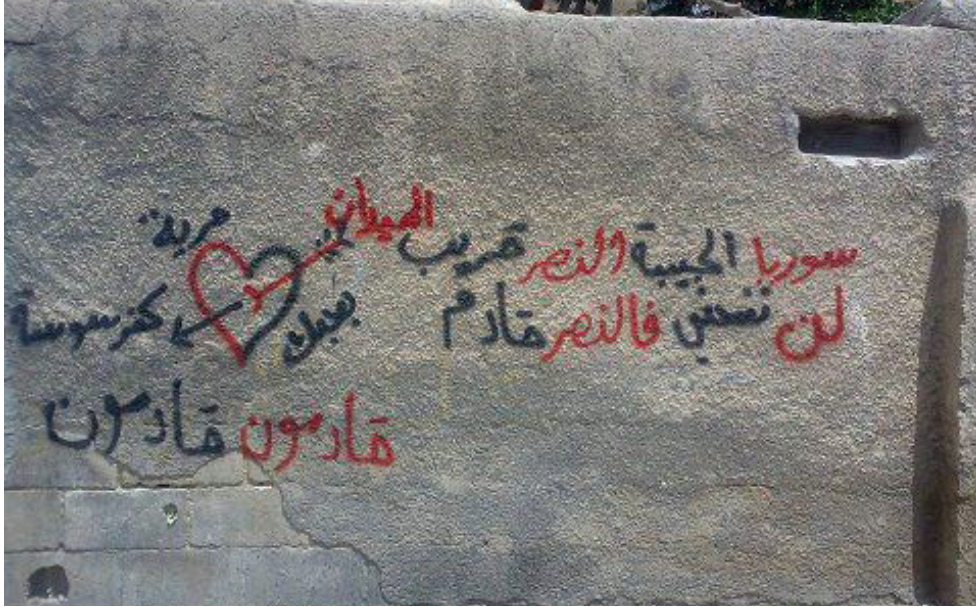 سوريا الحبيبة النصر قريب
لن ننحني فالنصر قادم
الميدان
حرية
بحبك
كفرسوسة
قادمون قادمون